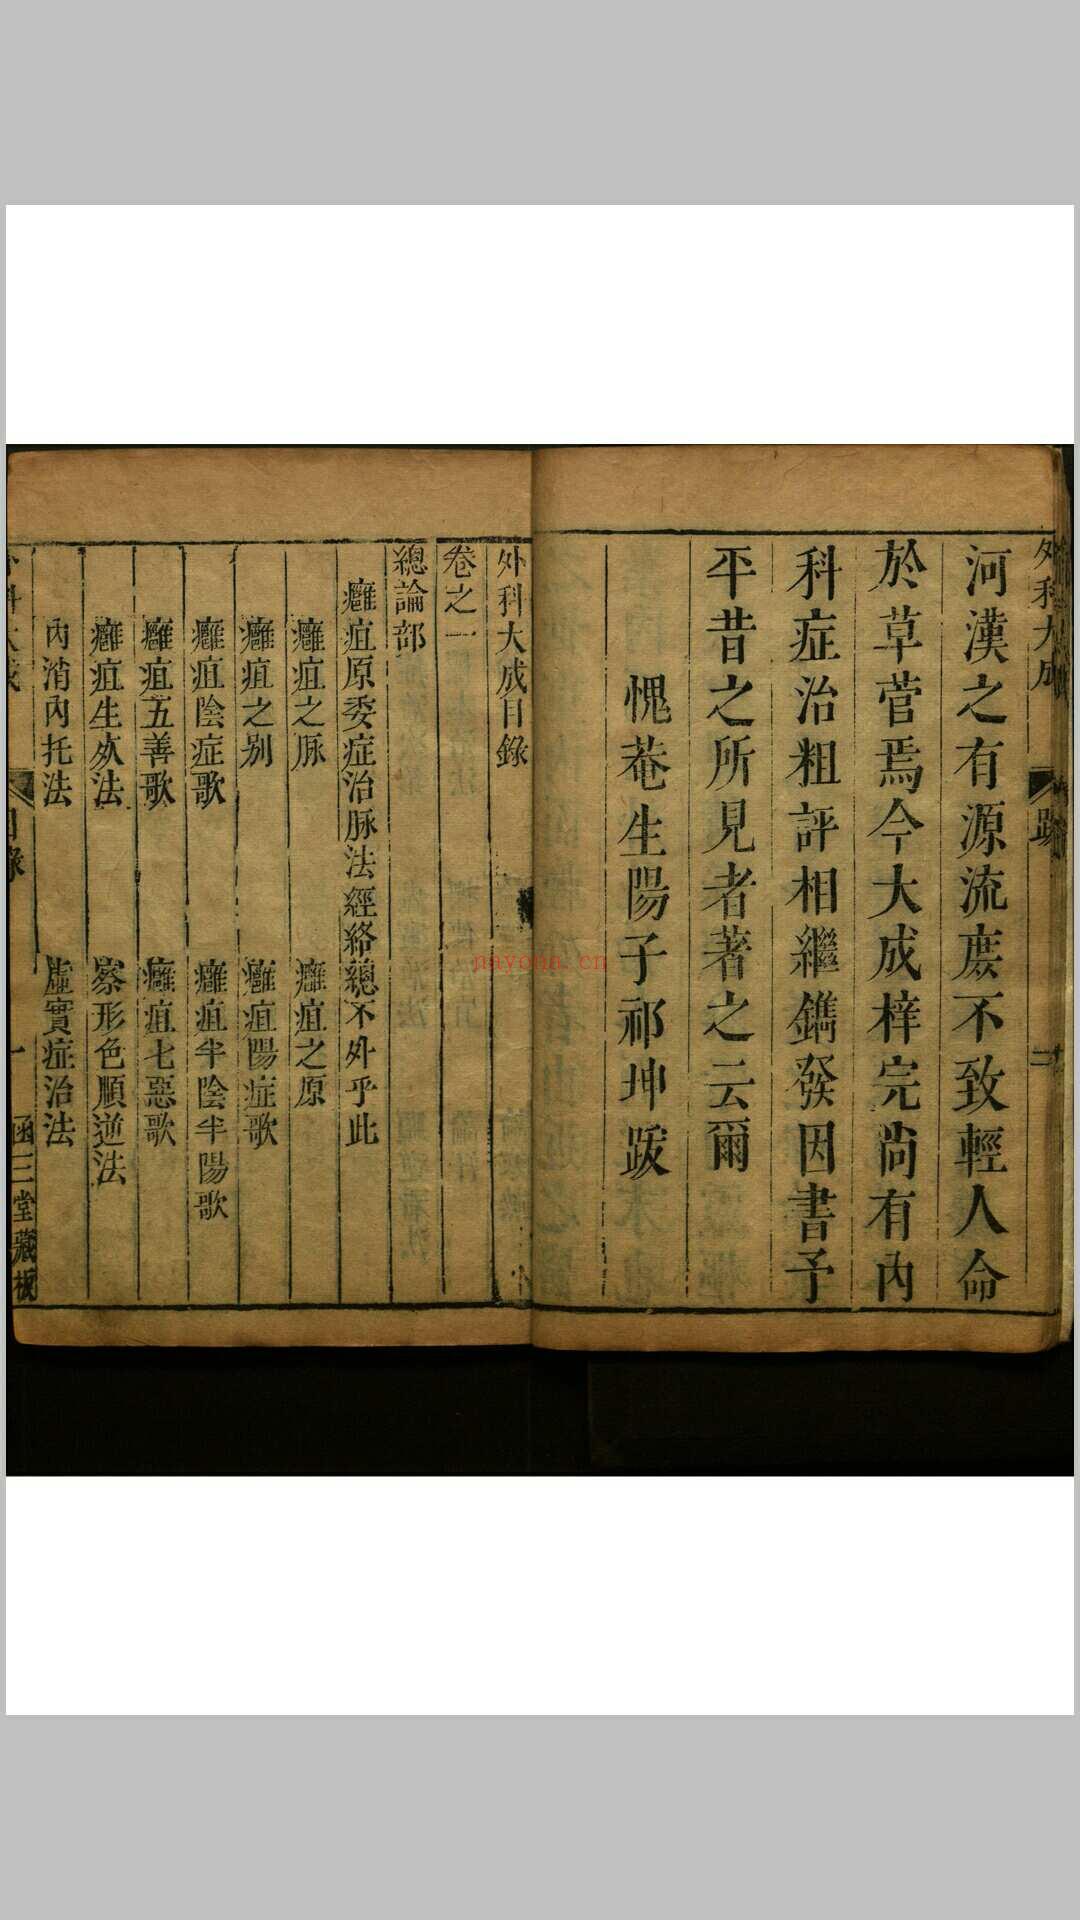 外科大成
跋
二
河漢之有源流庶不致輕人命
於草菅焉今大成梓完尚有內
科症治粗評相繼鐫發因書予
平昔之所見者著之云爾
愧菴生陽子祁坤跋
外科大成目錄
卷之一
總論部
癰疽原委症治脉法經絡總不外乎此
癰疽之脉 癰疽之原
癰疽之别 癰疽陽症歌
癰疽陰症歌 癰疽半陰半陽歌
癰疽五善歌 癰疽七惡歌
癰疽生𣦸法 察形色順逆法
內消內托法 虛實症治法
外科大成 目錄 一 函三堂藏板
nayona.cn